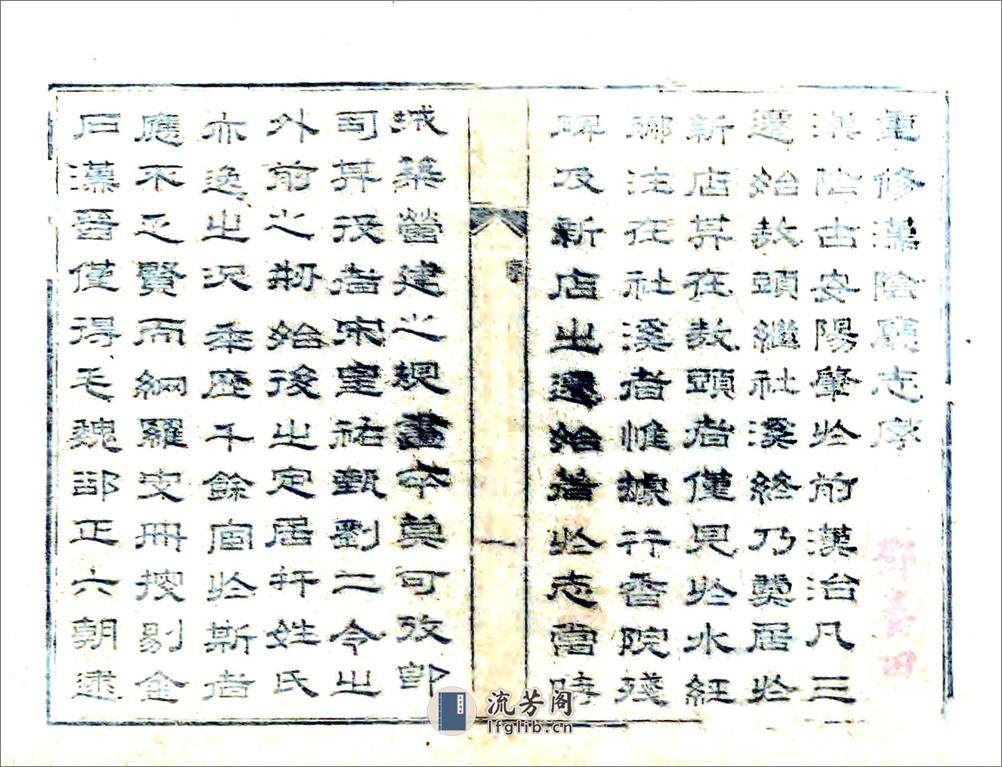 重修漢陰廳志序
漢陰古安陽肇於前漢治凡三
遷始敖頭繼社溪終乃奠居於
新店其在敖頭者僅見於水經
酈注在社溪者惟據行香院殘
碑及新店之遷始著於志當時
序
一
城築營建之規畫卒莫可攷即
司其役者宋皇祐甄劉二令之
外前之剏始後之定居并姓氏
亦逸之況垂歷千餘宦於斯者
應不乏賢而網羅史冊搜剔金
石漢晉僅得毛魏郤正六朝逮
流芳阁
lfglib.cn